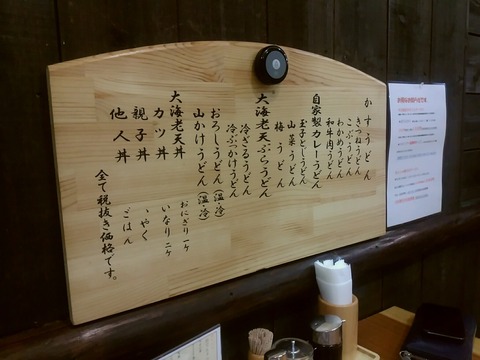 かすうどん
きつねうどん
こぶうどん
わかめうどん
和牛肉うどん
自家製カレーうどん
玉子とじうどん
山菜うどん
梅うどん
大海老天ぷらうどん
冷ざるうどん
冷ぶっかけうどん
おろしうどん(温・冷)
山かけうどん(温・冷)
大海老天丼
カツ丼
親子丼
他人丼
おにぎり一ケ
いなり二ケ
かやく
ごはん
全て税抜き価格です。